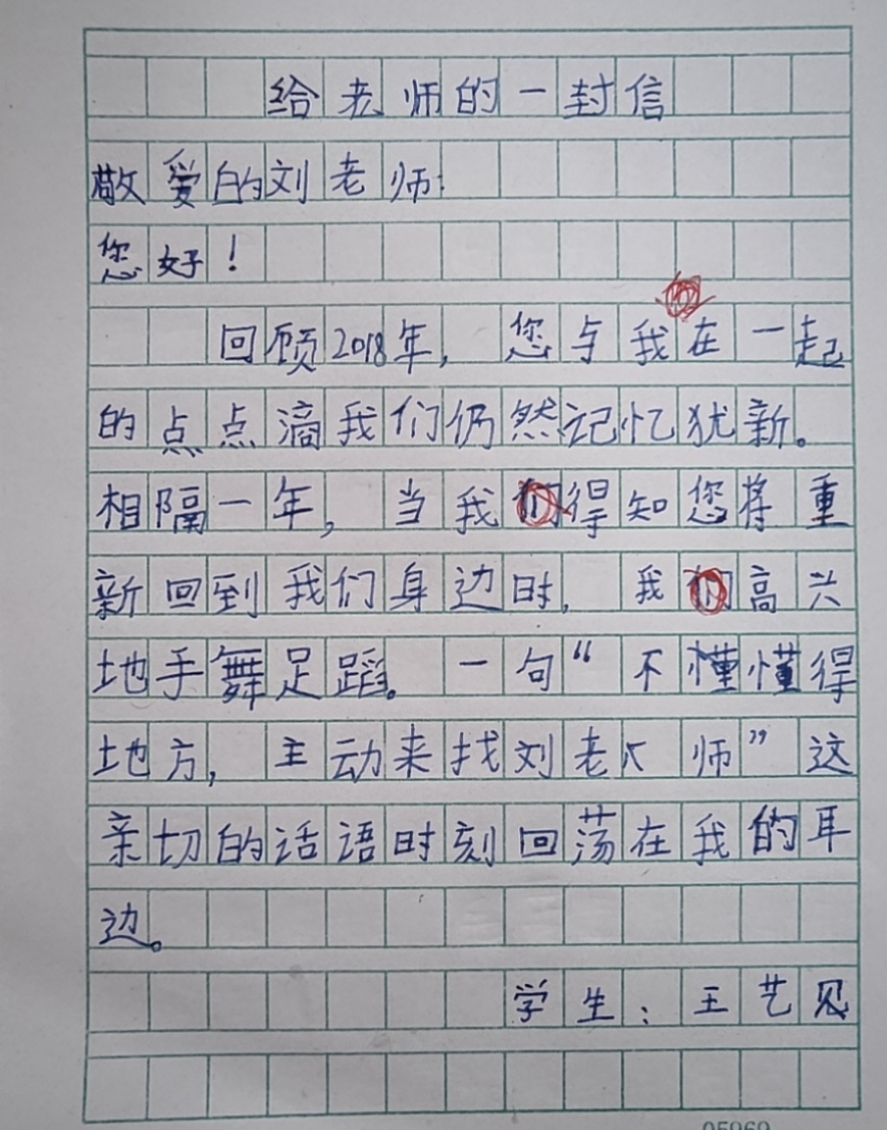 给老师的一封信
敬爱的刘老师:
您好!
回顾2018年, 您与我在一起
的点点滴我们仍然记忆犹新。
相隔一年, 当我们得知您将重
新回到我们身边时, 我们高兴
地手舞足蹈。一句“不懂懂得
地方, 主动来找刘老师”这
亲切的话语时刻回荡在我的耳
边。
学生: 王艺见
05969